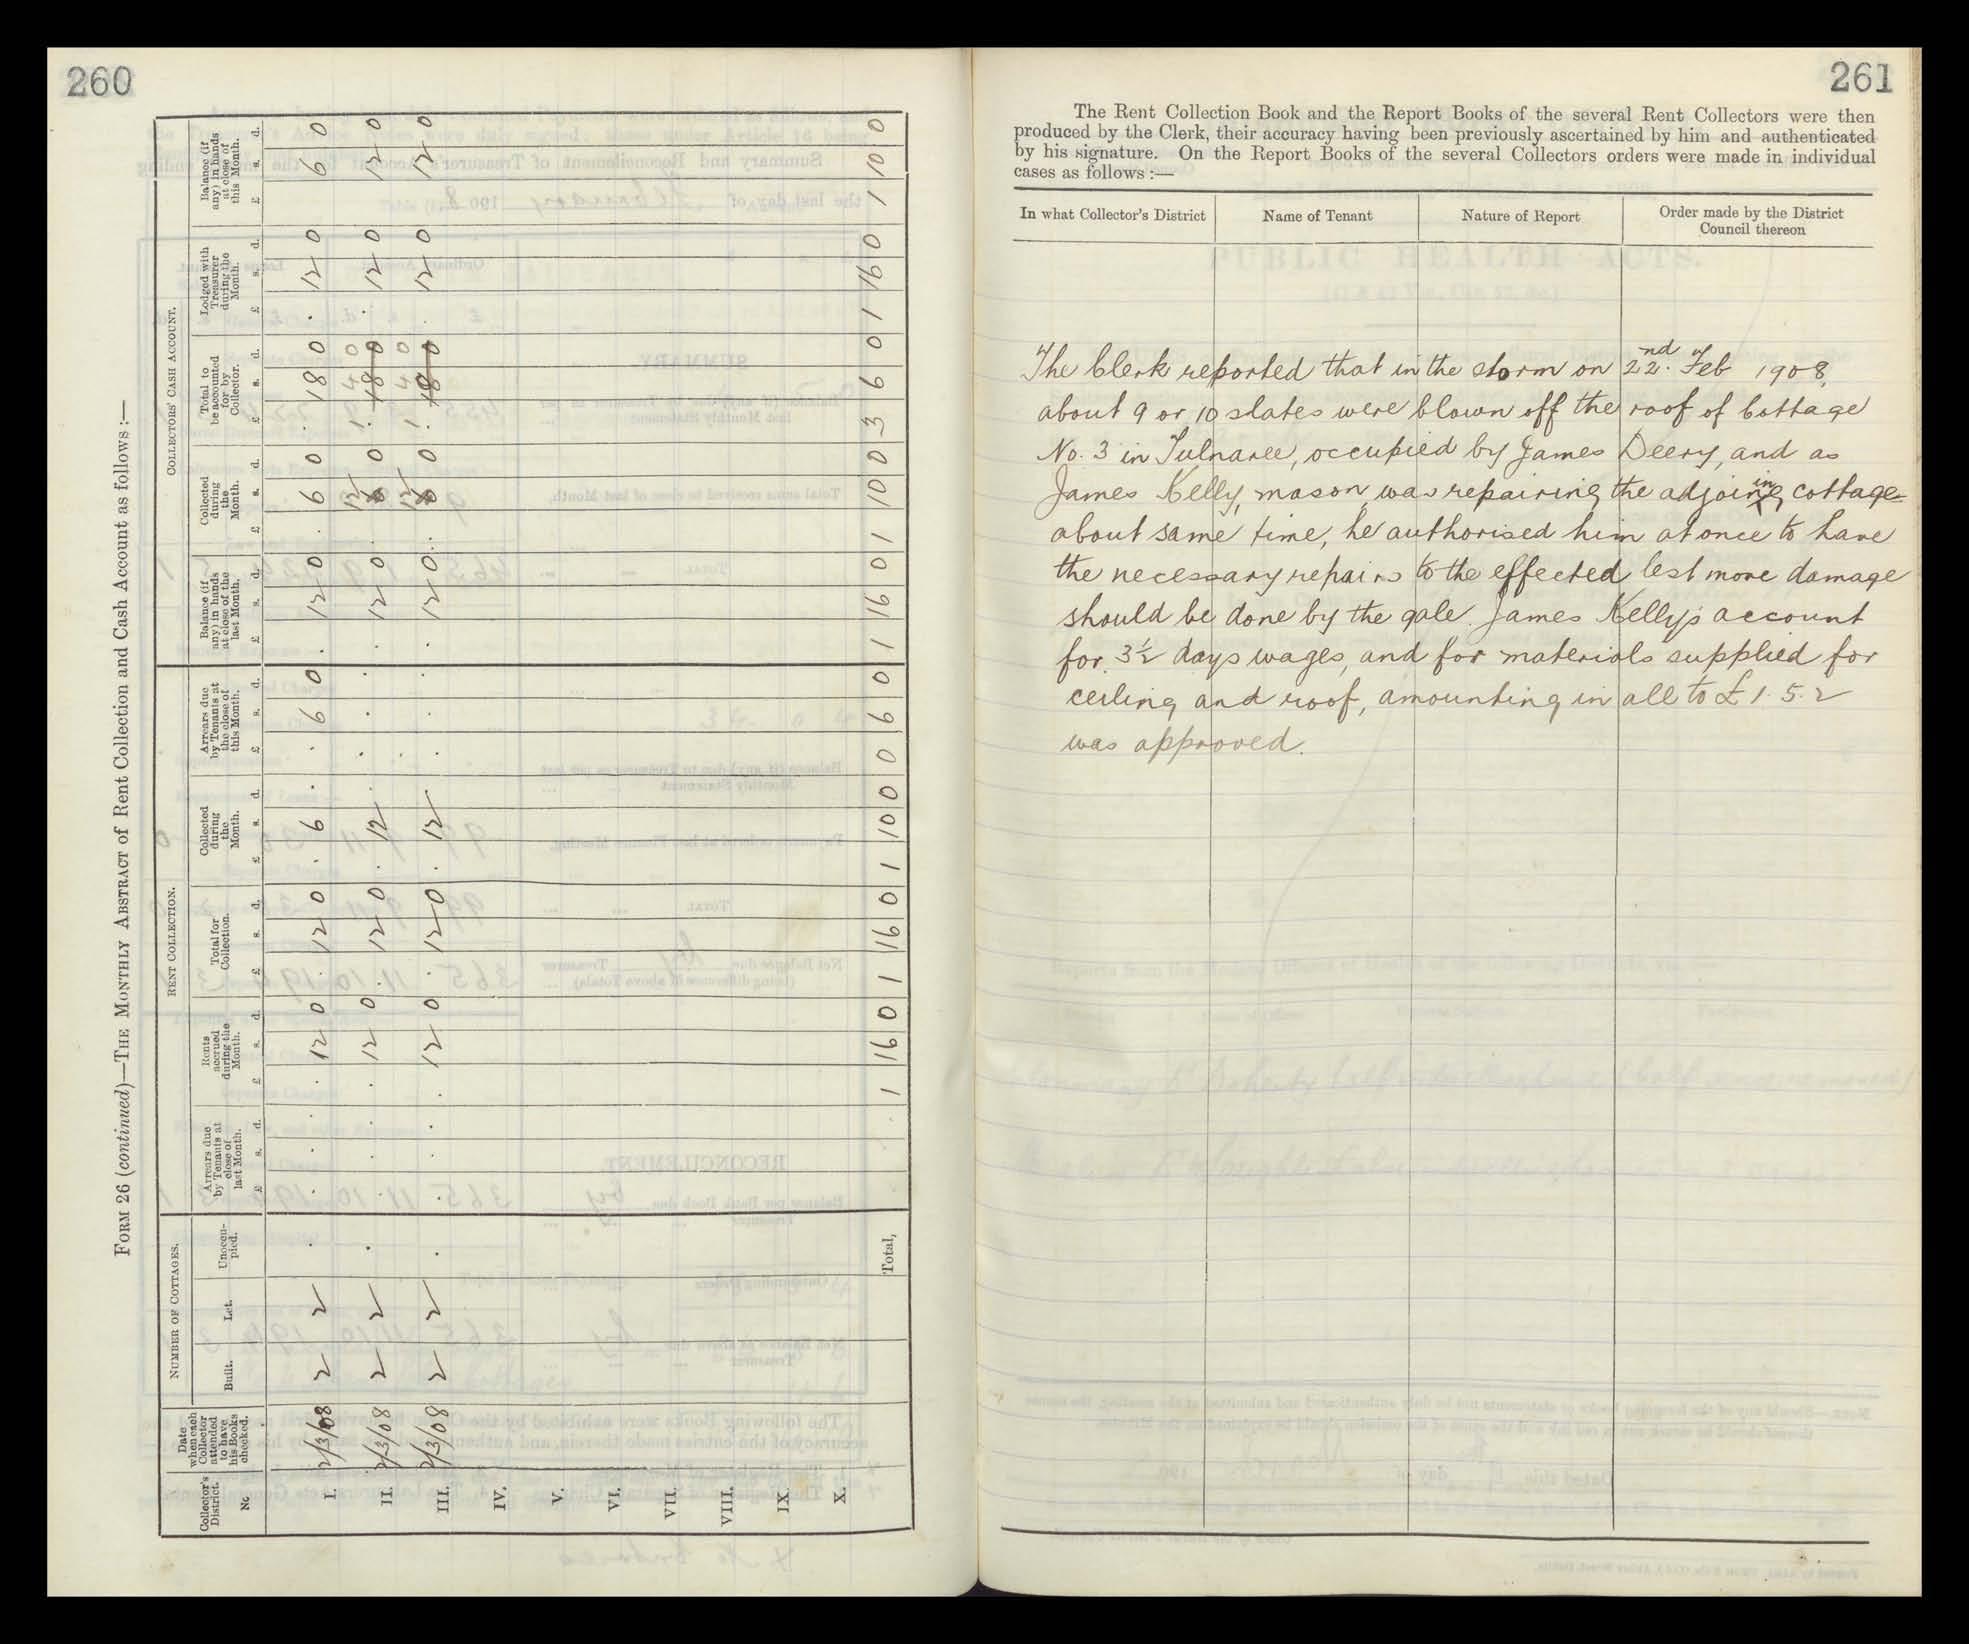 260
FORM 26 (continued)—THE MONTHLY ABSTRACT of Rent Collection and Cash Account as follows :—
NUMBER OF COTTAGES. RENT COLLECTION. COLLECTORS' CASH ACCOUNT.
Collector's District. No Date when each Collector attended to have his Books checked. Built. Let. Unoccupied. Arrears due by Tenants at close of last Month. Rents accrued during the Month. Total for Collection. Collected during the Month. Arrears due by Tenants at the close of this Month. Balance (if any) in hands at close of the last Month. Collected during the Month. Total to be accounted for by Collector. Lodged with Treasurer during the Month. Balance (if any) in hands at close of this Month.
£ s. d. £ s. d. £ s. d. £ s. d. £ s. d. £ s. d. £ s. d. £ s. d. £ s. d. £ s. d.
I. 2/3/08 2 2 . . . . . 12 0 . 12 0 . 6 . . 6 0 . 12 0 . 6 0 . 18 0 . 12 0 . 6 0
II. 2/3/08 2 2 . . . . . 12 0 . 12 0 . 12 . . . 12 0 12 0 1 4 0 . 12 0 12 0
III. 2/3/08 2 2 . . . . . 12 0 . 12 0 . 12 . . . 12 0 12 0 1 4 0 . 12 0 12 0
IV.
V.
VI.
VII.
VIII.
IX.
X.
Total, 1 16 0 1 16 0 1 10 0 0 6 0 1 16 0 1 10 0 3 6 0 1 16 0 1 10 0
261
The Rent Collection Book and the Report Books of the several Rent Collectors were then
produced by the Clerk, their accuracy having been previously ascertained by him and authenticated
by his signature. On the Report Books of the several Collectors orders were made in individual
cases as follows :—
In what Collector's District Name of Tenant Nature of Report Order made by the District Council thereon
The Clerk reported that in the storm on 22nd. Feb 1908,
about 9 or 10 slates were blown off the roof of Cottage
No. 3 in Tulnaree, occupied by James Deery, and as
James Kelly, mason, was repairing the adjoining cottage
about same time, he authorised him at once to have
the necessary repairs to the effected lest more damage
should be done by the gale. James Kelly's account
for 3½ days wages, and for materials supplied for
ceiling and roof, amounting in all to £1.5.2
was approved.